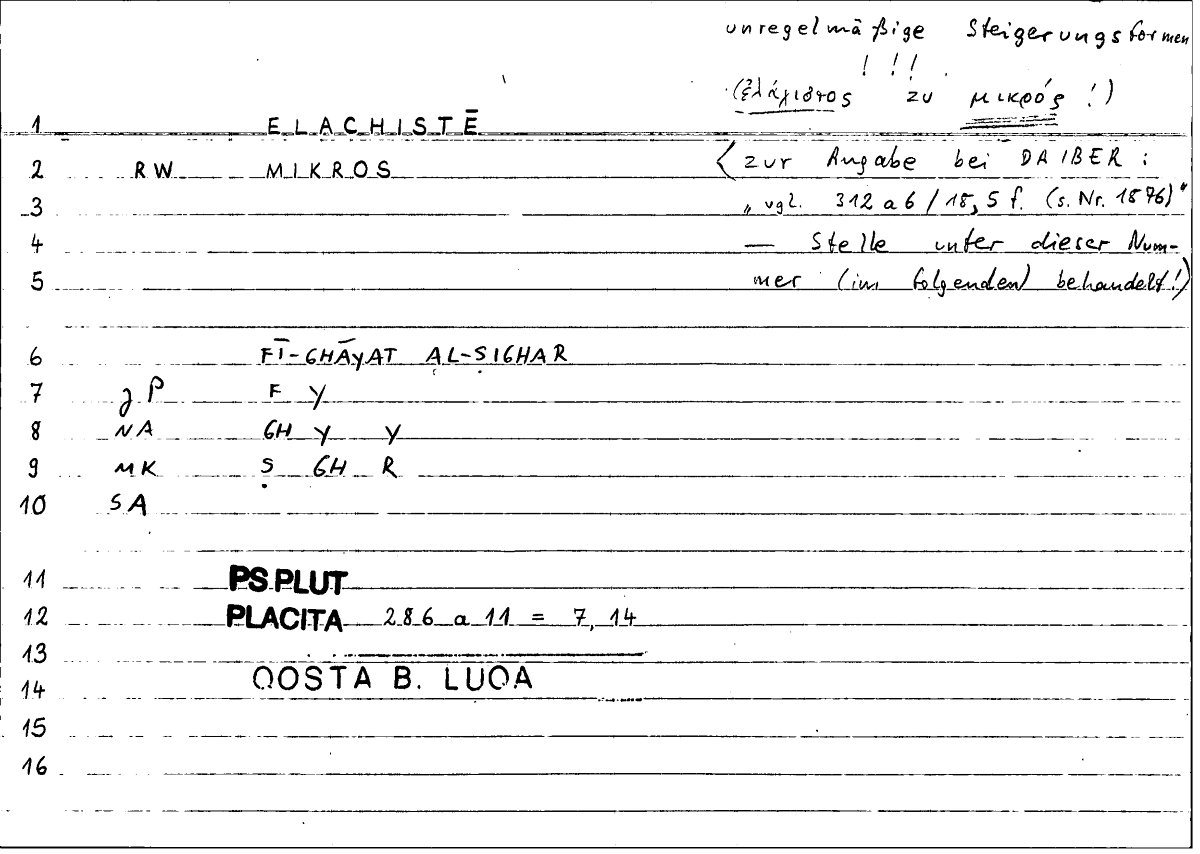 unregelmäßige Steigerungsformen
! ! !
(ἐλάχιστος zu μικρός !)
1 ELACHISTĒ
2 RW MIKROS
〈 zur Angabe bei DAIBER :
3 „ vgl. 312 a 6 / 18, 5 f. (s. Nr. 1876)"
4 — Stelle unter dieser Num-
5 mer (im folgenden) behandelt!〉
6 FĪ-GHĀYAT AL-ṢIGHAR
7 P F Y
8 NA GH Y Y
9 MK Ṣ GH R
10 SA
11 PS.PLUT
12 PLACITA 286 a 11 = 7, 14
13
14 QOSTA B. LUQA
15
16